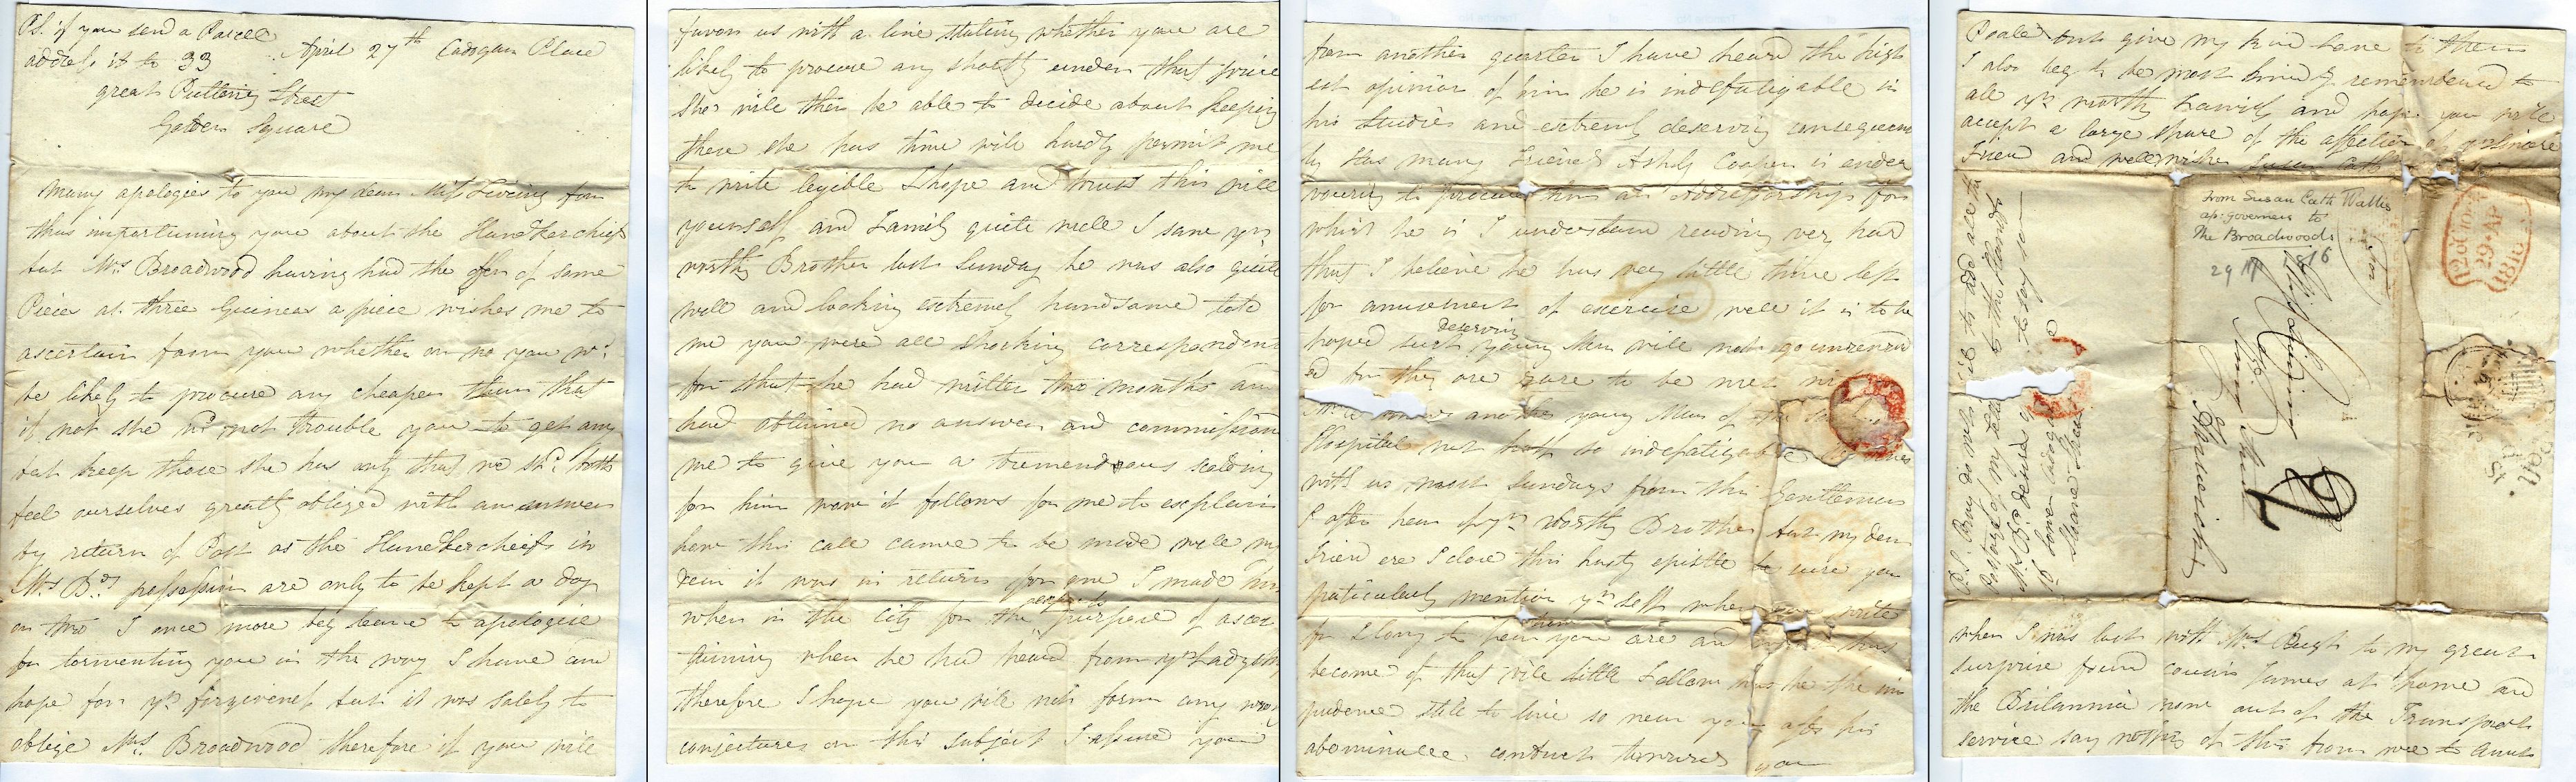 PS. if you send a Parcel
address it to 33
great Pulteney Street
Golden Square
April 27th Cadogan Place
Many apologies to you my dear Miss Living for
thus importuning you about the Handkerchiefs
but Mrs Broadwood having had the offer of some
Pieces at three Guineas a piece wishes me to
ascertain from you whether or no you wd.
be likely to procure any cheaper than that
if not she wd. not trouble you to get any
but keep those she has only that we shd. both
feel ourselves greatly obliged with an answer
by return of Post as the Handkerchiefs in
Mrs Bds. possession are only to be kept a day
or two I once more beg leave to apologise
for tormenting you in the way I have and
hope for yr. forgiveness but it was solely to
oblige Mrs Broadwood therefore if you will
favor us with a line stating whether you are
likely to procure any shortly under that price
she will then be able to decide about keeping
those she has time will hardly permit me
to write legible I hope and trust this will
yourself and Family quite well I saw yr.
worthy Brother last Sunday he was also quite
well and looking extremely handsome told
me you were all shocking correspondents
for that he had written two months and
had obtained no answer and commissioned
me to give you a tremendous scolding
for him now it follows for me to explain
how this call came to be made well my
dear it was in return for one I made him
when in the City for the express purpose of ascer
taining when he had heard from yr. Ladyship
therefore I hope you will not form any wrong
conjectures on this subject I assure you
from another quarter I have heard the high
est opinion of him he is indefatigable in
his studies and extremely deserving consequent
ly has many Friends Ashly Cooper is endea
vouring to procure him an
which he is I understand reading very hard
that I believe he has very little time left
for amusement of exercise well it is to be
hoped such deserving young Men will not go unreward
ed for they are sure to be met
another young Man of
Hospital not half so indefatigable
with us most Sundays from this Gentleman
I often hear of yr. Worthy Brother but my dear
Friend ere I close this hasty epistle be sure you
particularly mention yr. self when you write
for I long to hear how you are and what has
become of that vile little Fellow has he the im
pudence still to live so near you after his
abominable conduct towards you
but give my kind Love to them
I also beg to be most kindly remembered to
all yr. worthy Family and hope you will
accept a large share of the affection of yr. sincere
Friend and well wisher Susan Cath
P.S. Pray do not
Postage of my letter
to say
Sloane Street
From Susan Cath Wallis
ap: governess to
The Broadwoods
29 1816
Miss Living
Ipswich
12 o'Clock
29 AP
1816
when I was last with Mrs Pugh to my great
surprise found cousin James at home and
the Britannia now out of the Transport
service say nothing of this from me to Aunt